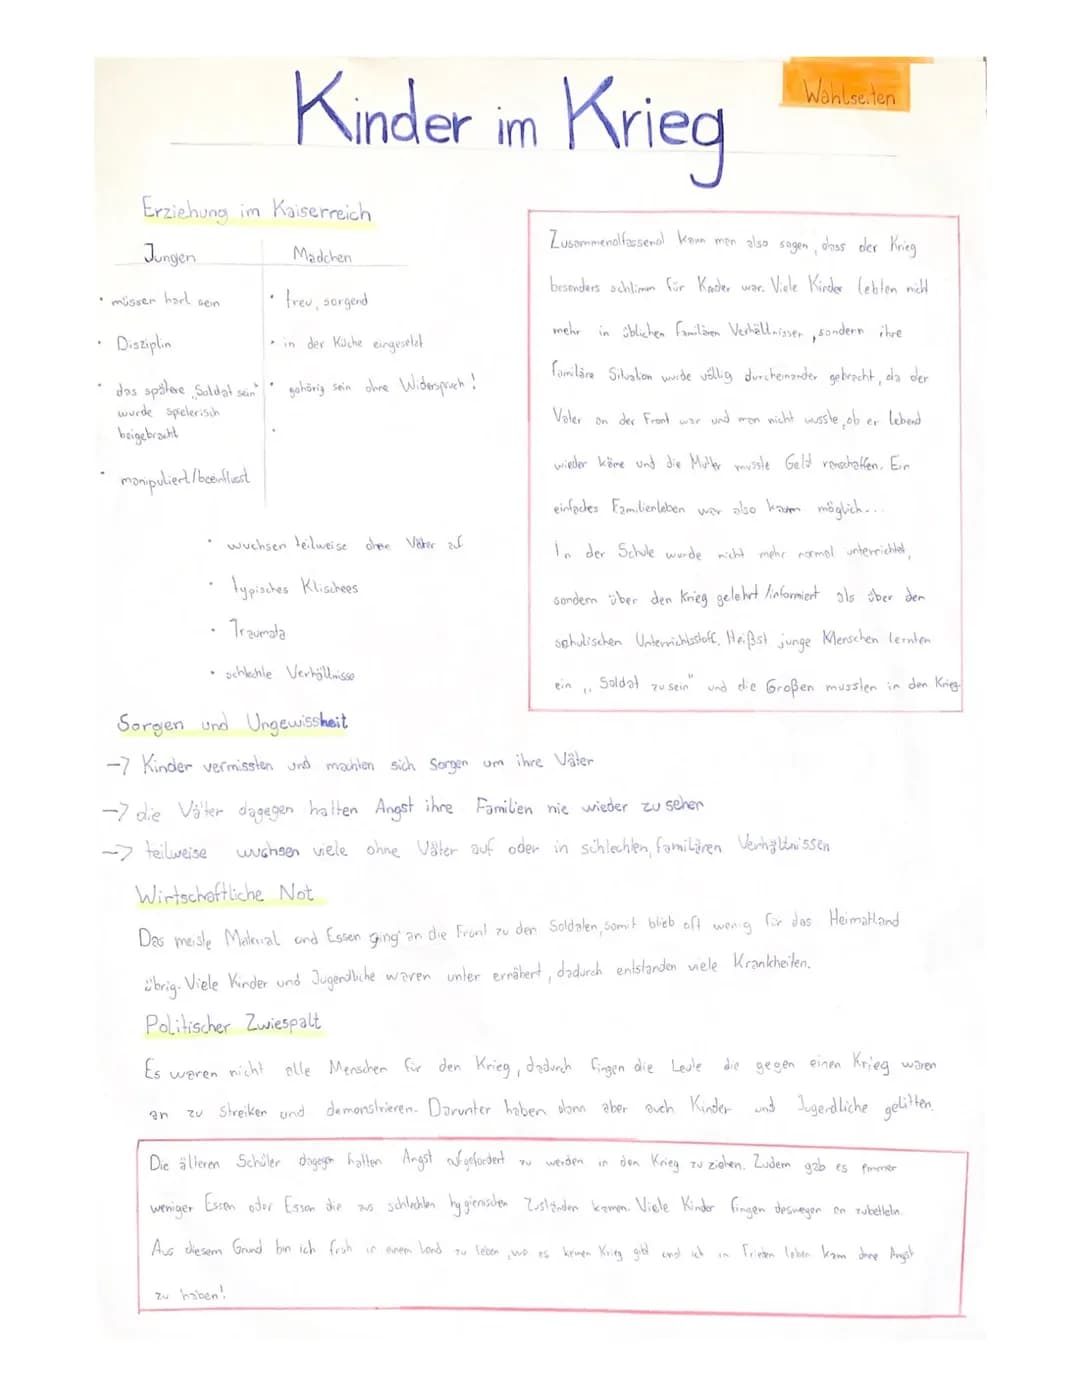 Wahlseiten
Kinder im Krieg
Erziehung im Kaiserreich
Jungen
• müssen hart sein
• Disziplin
• das spätere „Soldat sein"
wurde spielerisch
beigebracht
• manipuliert/beeinflusst
Mädchen
• treu, sorgend
• in der Küche eingesetzt
• gehörig sein ohne Widerspruch!
•
• wuchsen teilweise ohne Väter auf
• typisches Klischees
• Traumata
• schlechte Verhältnisse
Zusammenolfassend kann man also sagen, dass der Krieg
besonders schlimm für Kinder war. Viele Kinder lebten nicht
mehr in üblichen Familiären Verhältnissen, sondern ihre
familiäre Situation wurde völlig durcheinander gebracht, da der
Vater an der Front war und man nicht wusste, ob er lebend
wieder käme und die Mutter musste Geld ranschaffen. Ein
einfaches Familienleben war also kaum möglich...
In der Schule wurde nicht mehr normal unterrichtet,
sondern über den Krieg gelehrt/informiert als über den
schulischen Unterrichtsstoff. Heißst junge Menschen lernten
ein „Soldat zu sein" und die Großen mussten in den Krieg.
Sorgen und Ungewissheit
-> Kinder vermissten und machten sich Sorgen um ihre Väter
-> die Väter dagegen hatten Angst ihre Familien nie wieder zu sehen
-> teilweise wuchsen viele ohne Väter auf oder in schlechten, familären Verhältnissen
Wirtschaftliche Not
Das meiste Material und Essen ging an die Front zu den Soldaten, somit blieb oft wenig für das Heimatland
übrig. Viele Kinder und Jugendliche waren unter ernährt, dadurch entstanden viele Krankheiten.
Politischer Zwiespalt
Es waren nicht alle Menschen für den Krieg, dadurch fingen die Leute die gegen einen Krieg waren
an zu Streiken und demonstrieren. Darunter haben dann aber auch Kinder und Jugendliche gelitten.
Die älteren Schüler dagegen hatten Angst aufgefordert zu werden in den Krieg zu ziehen. Zudem gab es immer
weniger Essen oder Essen die aus schlechten hygienischen Zuständen kamen. Viele Kinder fingen deswegen an zu betteln.
Aus diesem Grund bin ich froh in einem Land zu leben, wo es keinen Krieg gibt und ich in Frieden leben kann ohne Angst
zu haben!